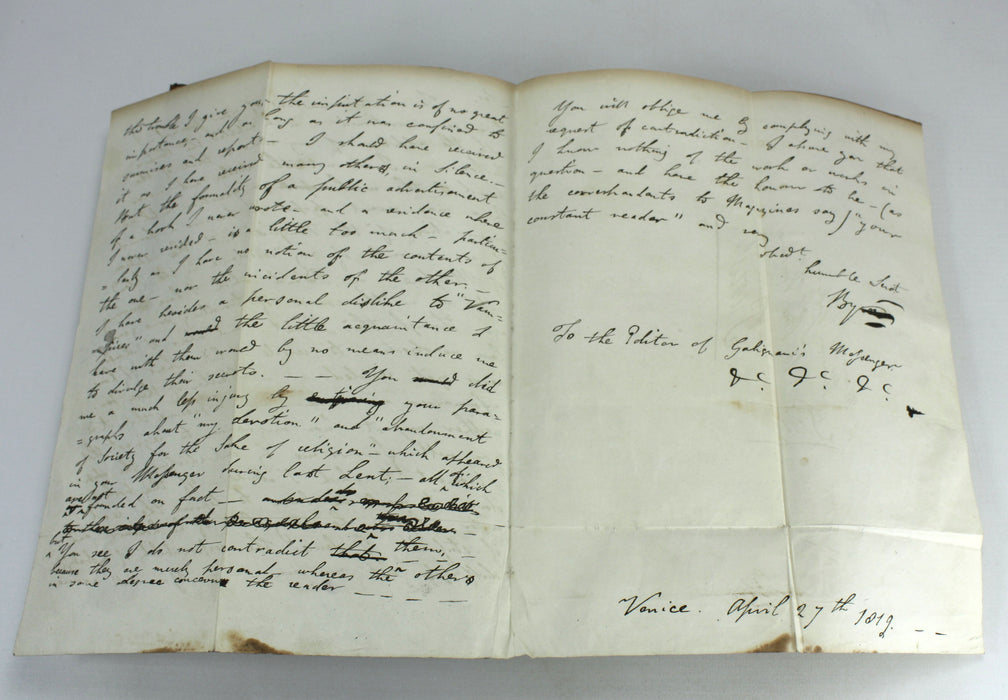 this trouble I give you - the imputation is of no great
importance - and as long as it was confined to
surmises and reports - I should have received
it as I have received many others, in Silence. -
But the formality of a public advertisement
of a book I never wrote - and a residence where
I never resided - is a little too much - particu-
= larly as I have no notion of the contents of
the one - nor the incidents of the other. -
I have besides a personal dislike to "Vam-
= pires" and the little acquaintance I
have with them would by no means induce me
to divulge their secrets. - - - You did
me a much less injury by your para-
= graphs about "my devotion" and "abandonment
of Society for the Sake of religion" - which appeared
in your Messenger during last Lent; - all of which
are not founded on fact -
but
You see I do not contradict them, -
because they are merely personal - whereas the others
in some degree concern the reader - - - -
You will oblige me by complying with my
request of contradiction - I assure you that
I know nothing of the work or works in
question - and have the honour to be - (as
the correspondents to Magazines say) "your
constant reader" and very
obedt.
humble Sert
Byron
To the Editor of Galignani's Messenger
&c. &c. &c.
Venice. April 27th 1819. - -